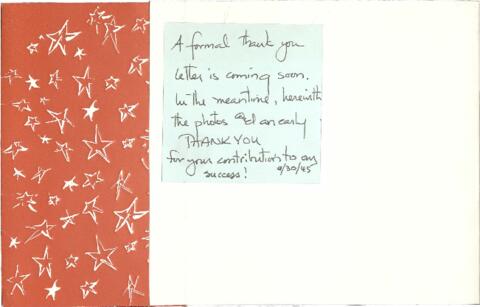 A formal thank you
letter is coming soon.
In the meantime, herewith
the photos and an early
THANK YOU
for your contribution to our
success! 9/30/95